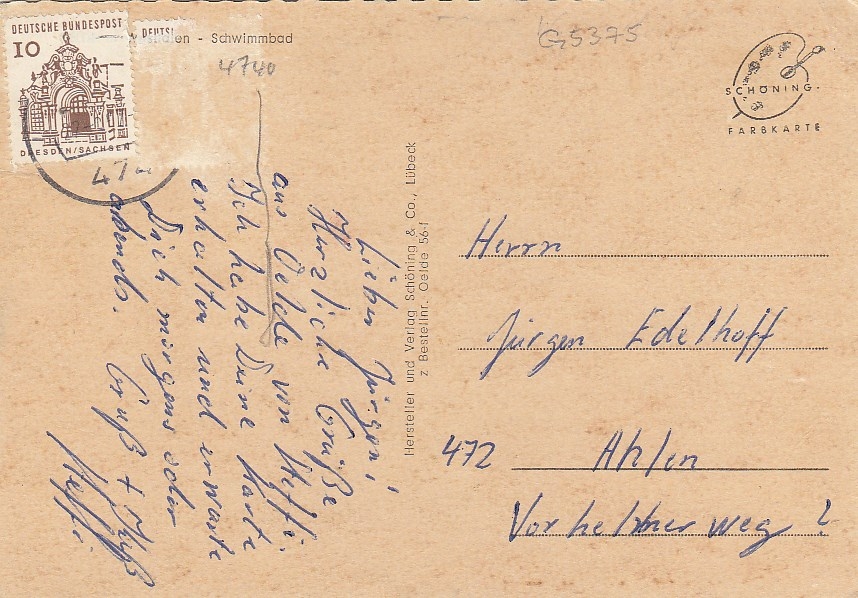 DEUTSCHE BUNDESPOST
10
DRESDEN/SACHSEN
DEUTS
- Schwimmbad
4740
G5375
SCHÖNING
FARBKARTE
47
Lieber Jürgen!
Herzliche Grüße
aus Oelde von Steffi.
Ich habe Deine Karte
erhalten und erwarte
Dich morgens oder
abends. Gruß + Kuß
Steffi
Hersteller und Verlag Schöning & Co., Lübeck
z Bestellnr. Oelde 56-I
Herrn
Jürgen Edelhoff
472 Ahlen
Vorhelmer weg 2